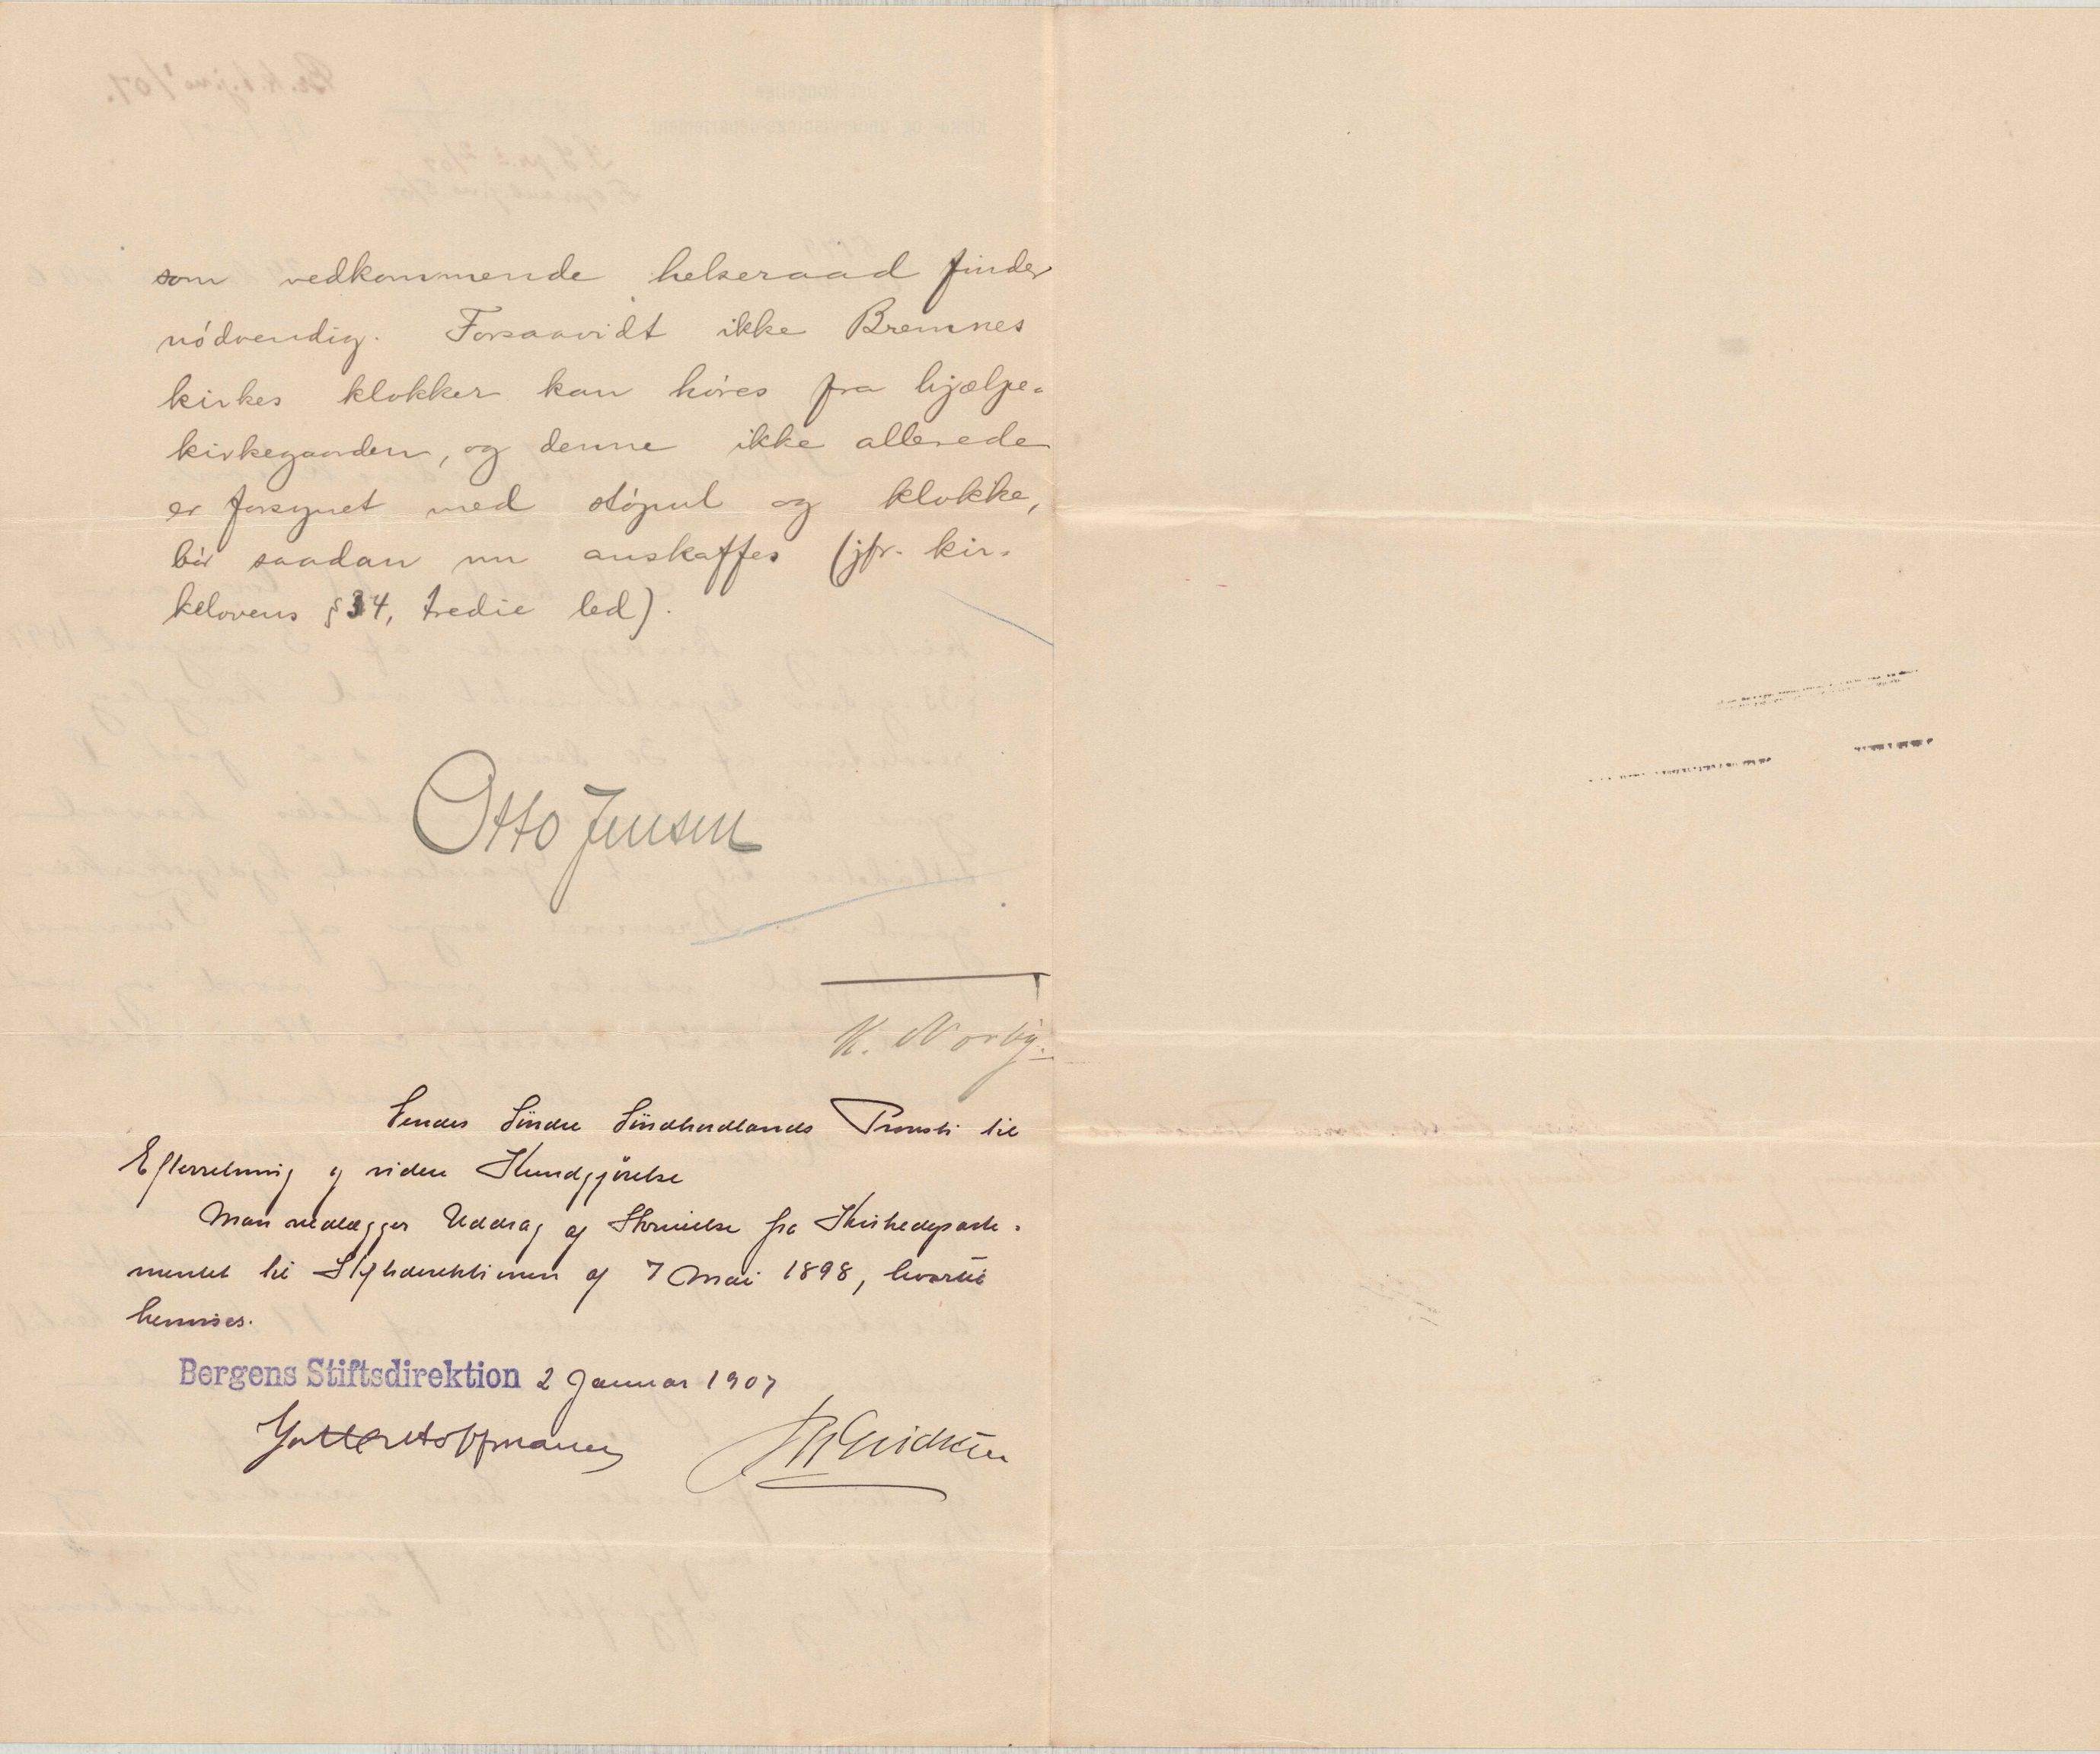 som vedkommende helseraad finder
nödvendig. Forsaavidt ikke Bremnes
kirkes klokker kan höres fra hjælpe-
kirkegaarden, og denne ikke allerede
er forsynet med stöpul og klokke,
bör saadan nu anskaffes (jfr. kir-
kelovens § 34, tredie led).
Otto Jensen
K. Norby.
Sendes Söndre Söndhordlands Provsti til
Efterretning og videre Kundgjörelse
Man vedlægger Uddrag af Skrivelse fra Kirkedeparte-
mentet til Stiftsdirektionen af 7 Mai 1898, hvortil
henvises.
Bergens Stiftsdirektion 2 Januar 1907
Hoffmann